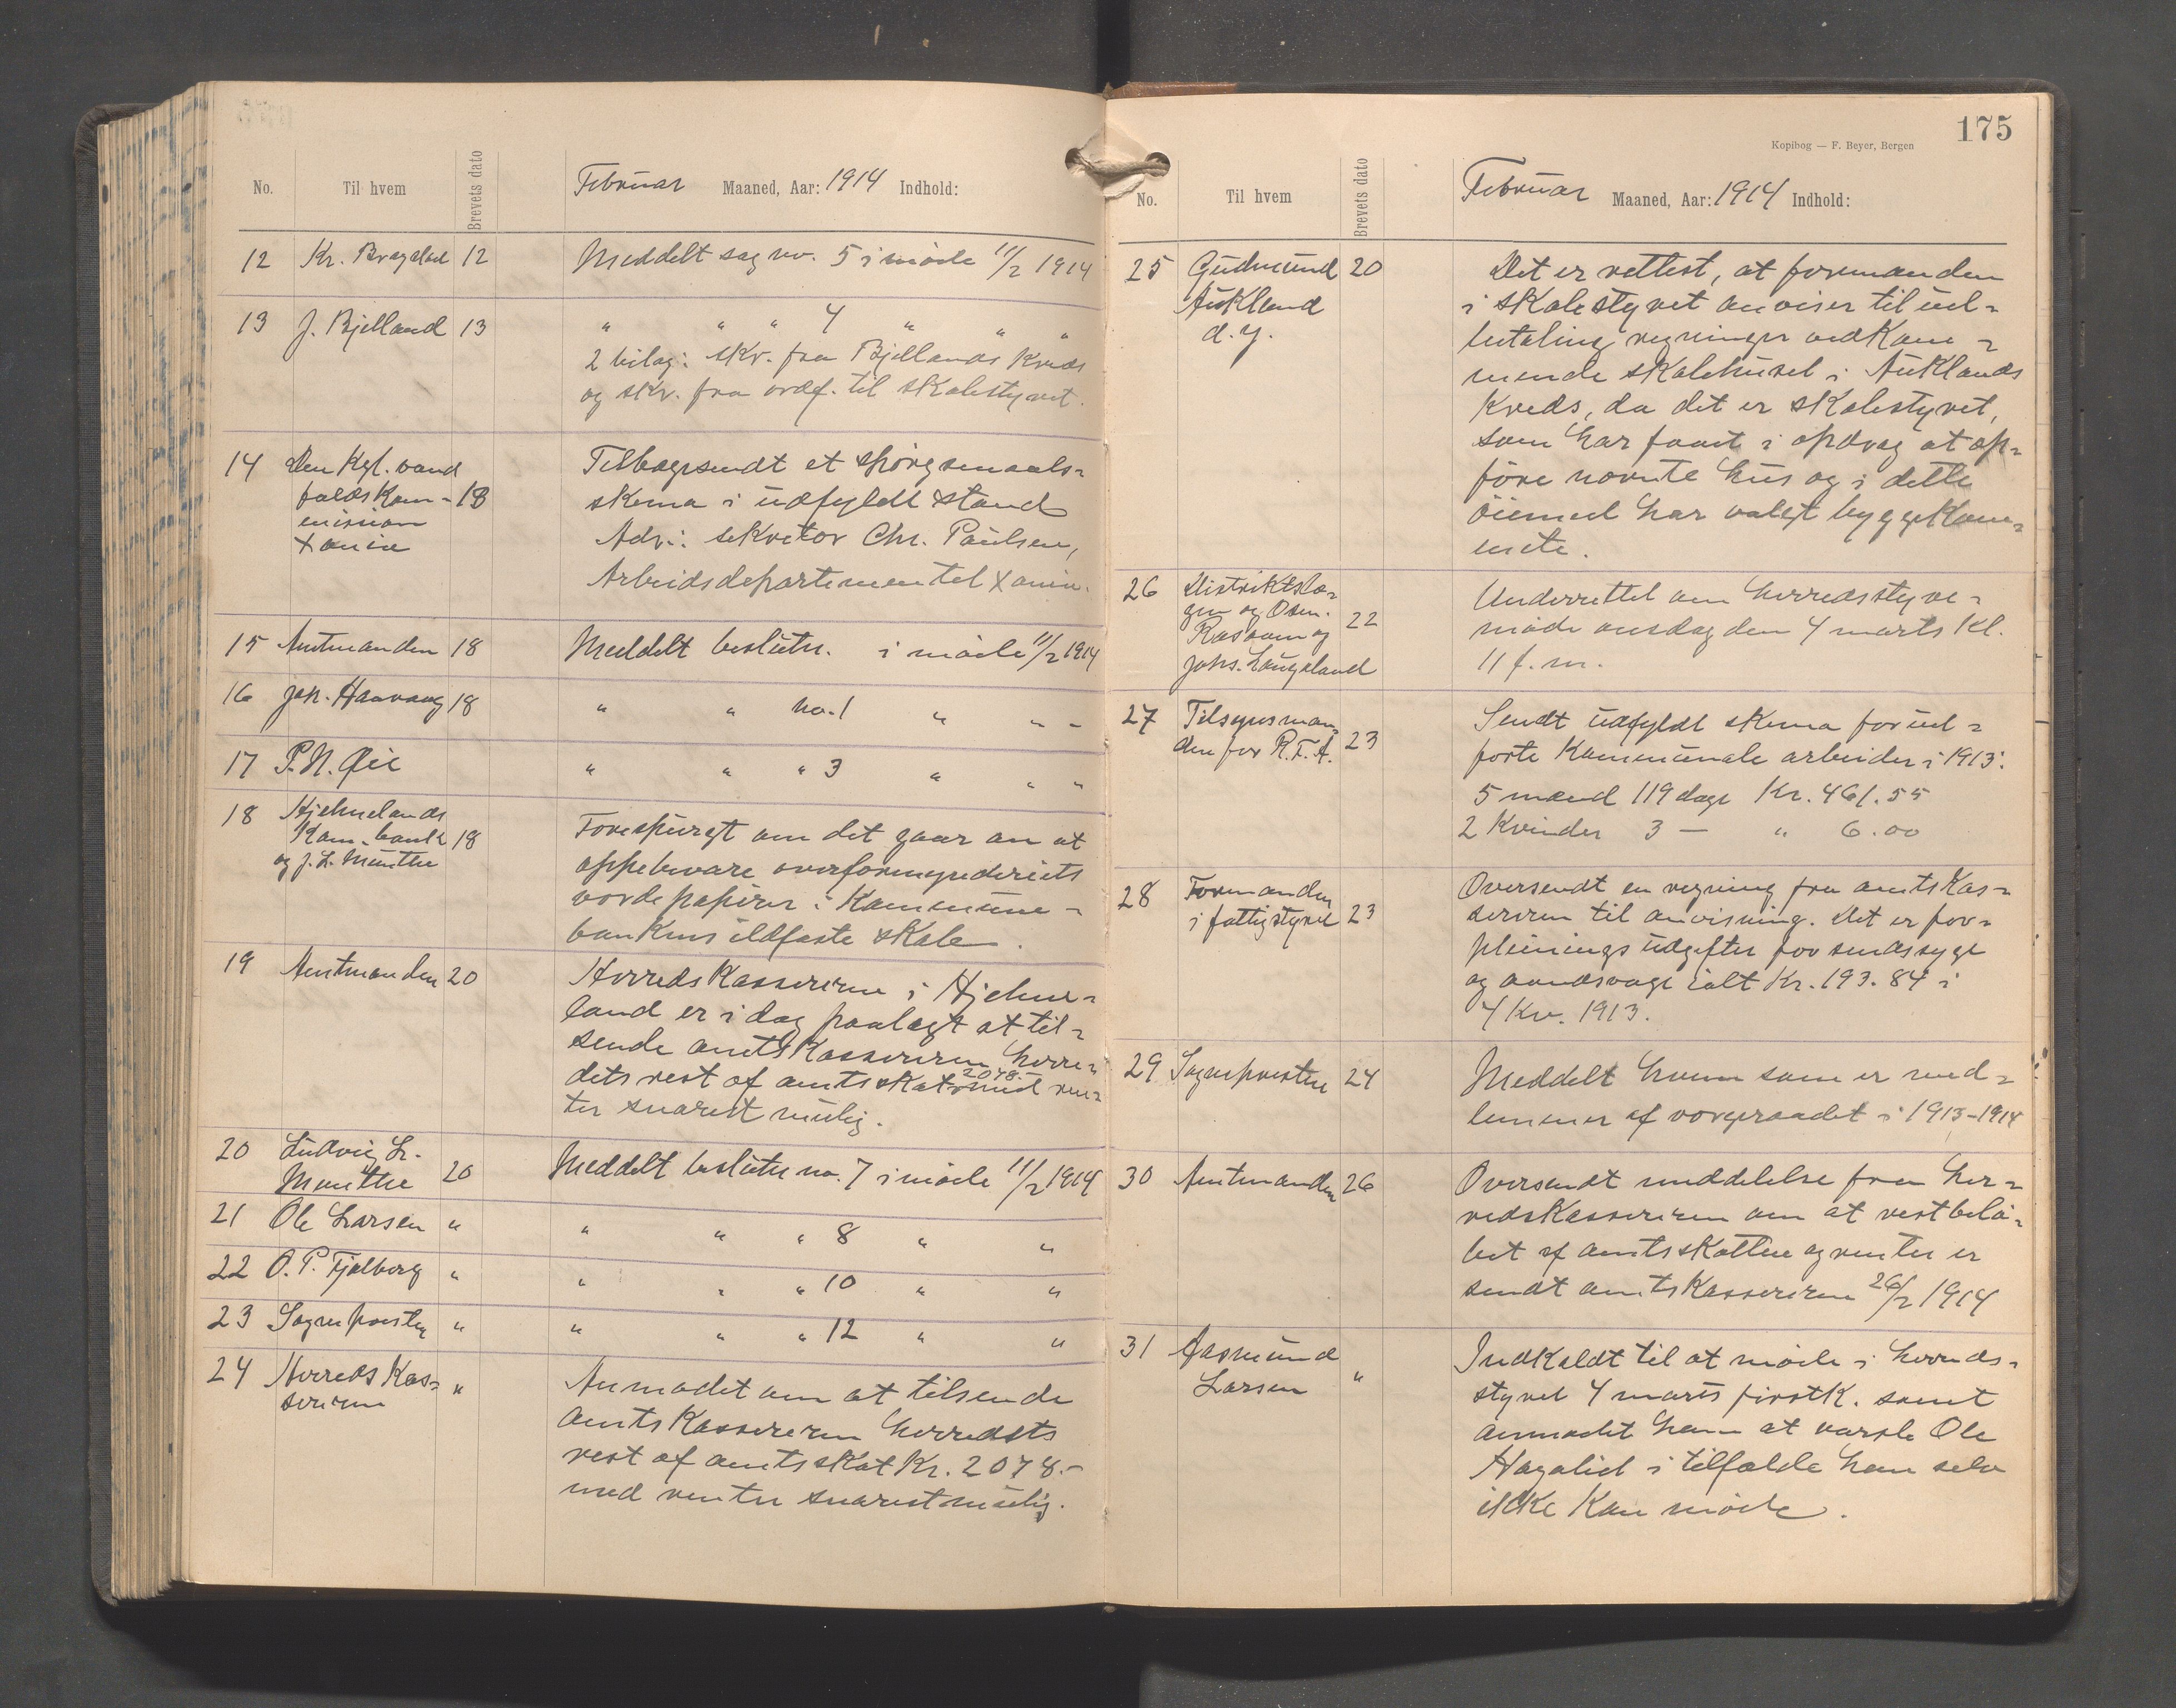 No. Til hvem Brevets dato Februar Maaned, Aar: 1914 Indhold:
12 Kr. Bragstad 12 Meddelt sag no. 5 i møde 11/2 1914
13 J. Bjelland 13 " " " 4 " " "
2 bilag: skr. fra Bjellands kreds
og skr. fra ordf. til skolestyret.
14 Den Kgl. vand
faldskom-
mission
Xania 18 Tilbagesendt et spørgsmaals-
skema i udfyldt stand
Adr.: sekretær Chr. Paulsen,
Arbeidsdepartementet Xania.
15 Amtmanden 18 Meddelt beslutn. i møde 11/2 1914
16 Joh. Haavaag 18 " " no. 1 " " "
17 P. N. Øie " " " 3 " " "
18 Hjelmelands
Kom. bank
og J. L. Munthe 18 Forespurgt om det gaar an at
oppebevare overformynderiets
værdipapirer i Kommune-
bankens ildfaste skab.
19 Amtmanden 20 Herredskassereren i Hjelme-
land er i dag paalagt at til-
sende amtskassereren herre-
dets rest af amtsskat 2078.- med ren-
ter snarest mulig.
20 Ludvig L.
Munthe 20 Meddelt beslutn no. 7 i møde 11/2 1914
21 Ole Larsen " " " " 8 " "
22 O. P. Fjelberg " " " " 10 " "
23 Sognepresten " " " " 12 " "
24 Herredskas-
sereren " Anmodet om at tilsende
amtskassereren herredets
rest af amtsskat Kr. 2078.-
med renter snarest mulig.
175
Kopibog — F. Beyer, Bergen
No. Til hvem Brevets dato Februar Maaned, Aar: 1914 Indhold:
25 Gudmund
Aukland
d. y. 20 Det er rettest, at formanden
i skolestyret anviser til ud-
betaling regninger vedkom-
mende skolehuset i Auklands
Kreds, da det er skolestyret,
som har faaet i opdrag at op-
føre nævnte hus og i dette
øiemed har valgt byggekom-
mite.
26 Distriktslæ-
gen og Osm.
Raavam og
Johs. Laugaland 22 Underrettet om herredsstyre-
møde onsdag den 4 marts Kl.
11 f. m.
27 Tilsynsman-
den for R.F.A. 23 Sendt udfyldt skema for ud-
førte kommunale arbeider i 1913:
5 mænd 119 dage Kr. 461.55
2 Kvinder 3 — " 6.00
28 Formanden
i fattigstyret 23 Oversendt en regning fra amtskas-
sereren til anvisning. Det er for-
pleiningsudgifter for sindssyge
og aandssvage ialt Kr. 193.84 i
4 Kv. 1913.
29 Sognepresten 24 Meddelt hvem som er med-
lemmer af vergeraadet i 1913-1914
30 Amtmanden 26 Oversendt meddelelse fra her-
redskassereren om at restbelø-
bet af amtsskatten og renter er
sendt amtskassereren 26/2 1914
31 Aasmund
Larsen " Indkaldt til at møde i herreds-
styret 4 marts førstk. samt
anmodet ham at varsle Ole
Hagalid i tilfælde han selv
ikke kan møde.